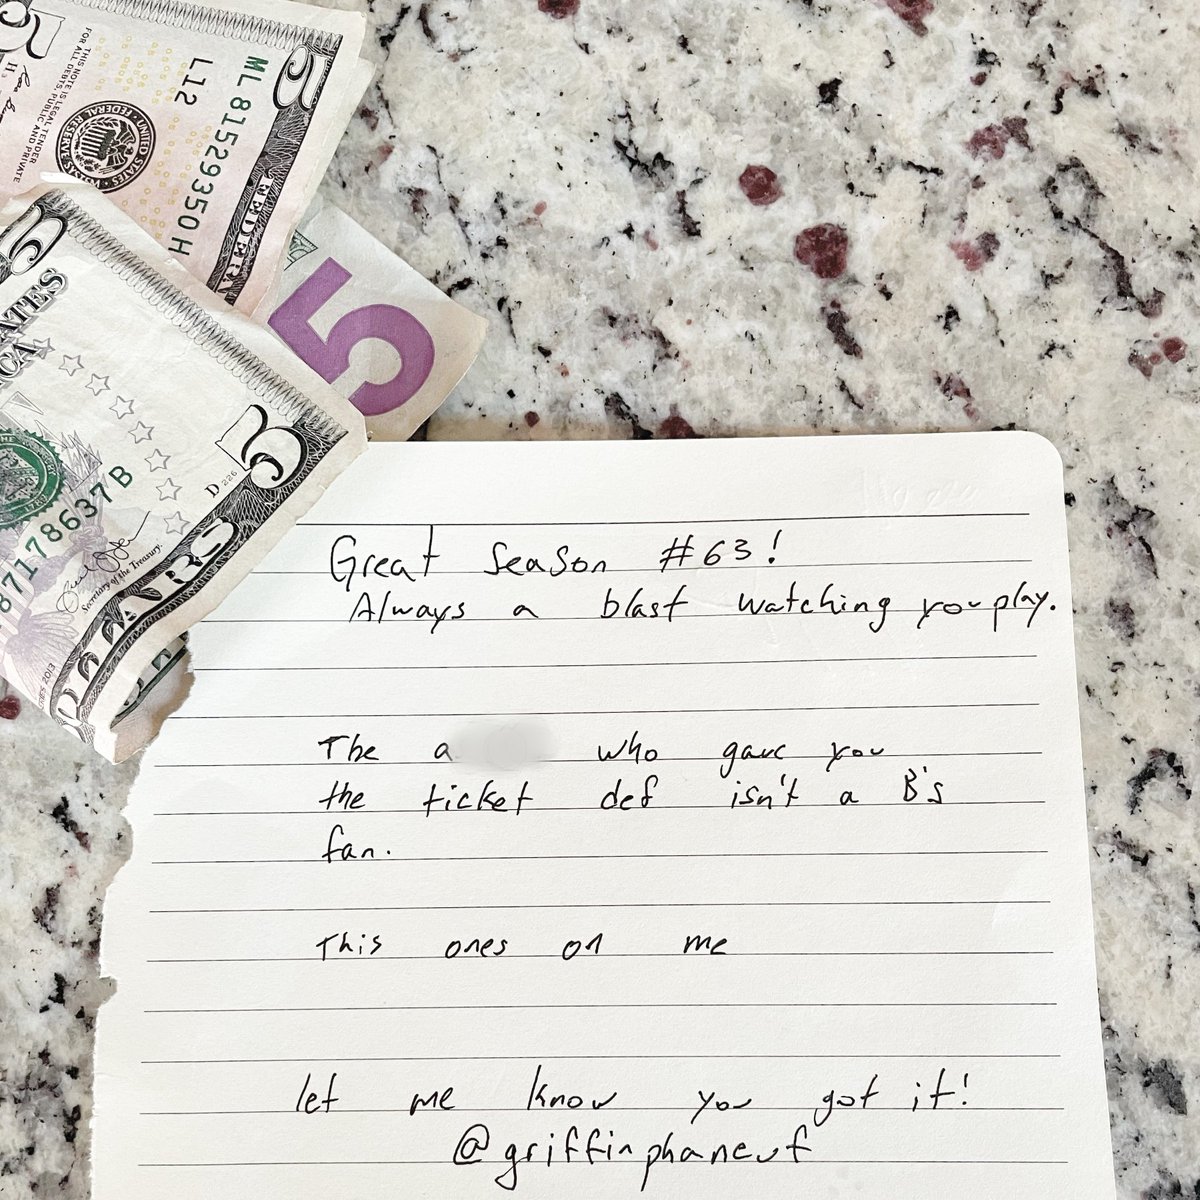 THIS NOTE IS LEGAL TENDER
FOR ALL DEBTS, PUBLIC AND PRIVATE
ML 81529350H
L12
UNITED STATES FEDERAL RESERVE SYSTEM
FEDERA
5
5
ATES
CA
5
D 226
87178637B
Secretary of the Treasury.
2013
Great Season #63!
Always a blast watching you play.
The a who gave you
the ticket def isn't a B's
fan.
This ones on me
let me know you got it!
@griffinphaneuf